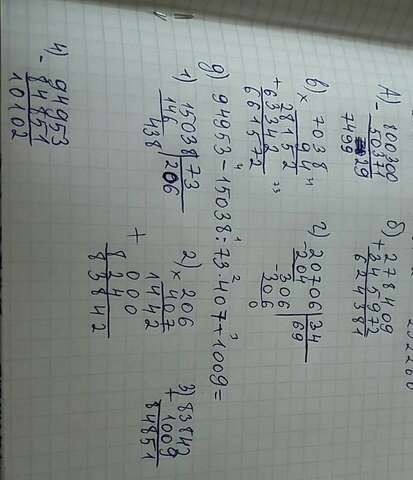 А) 800300
- 50371
749929
б) 278409
+ 345972
624381
в) 7038
× 94
28152
+ 63342
661572
г) 20706 | 34
- 204 | 69
306
- 306
0
д) 94953-15038:73·407+1009=
1) 15038 | 73
146 | 206
438
2) 206
× 407
1442
+ 000
824
83842
3) 83842
+ 1009
84851
4) 94953
- 84851
10102